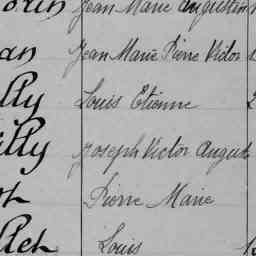 Jean Marie Augustin
Jean Marie Pierre Victor
lly Louis Etienne
illy Joseph Victor August
Pierre Marie
Louis